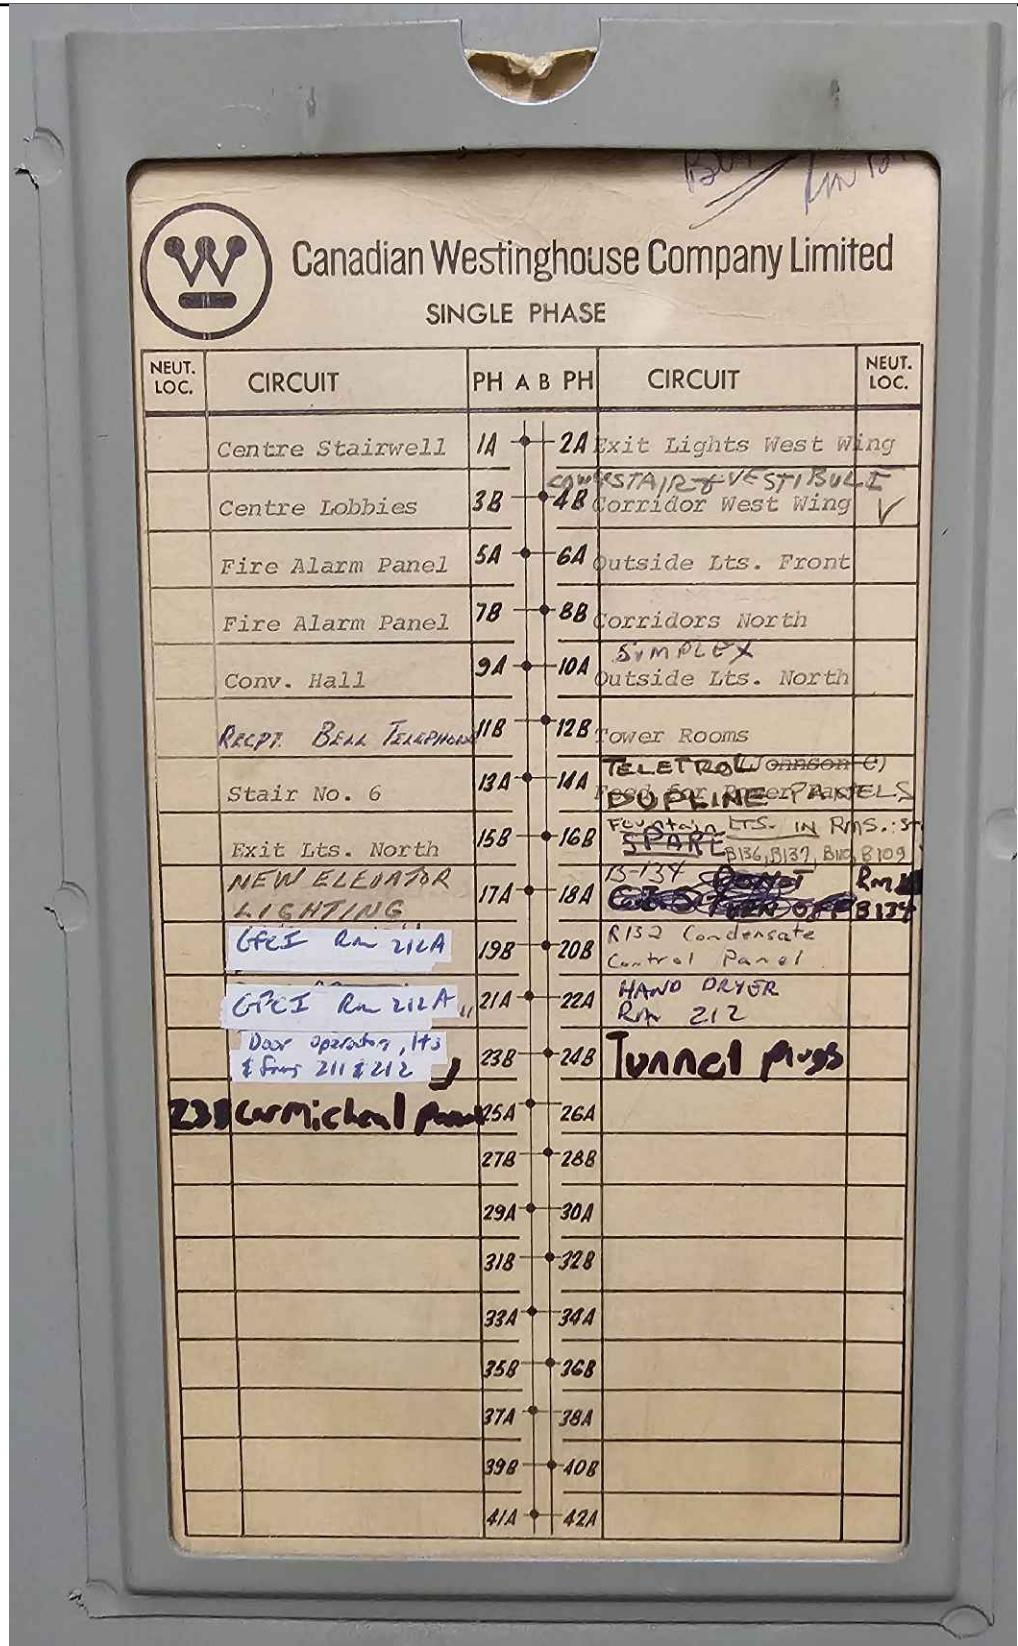 W
Canadian Westinghouse Company Limited
SINGLE PHASE
NEUT. LOC. CIRCUIT PH A B PH CIRCUIT NEUT. LOC.
Centre Stairwell 1A 2A Exit Lights West Wing
STAIR & VESTIBULE
Centre Lobbies 3B 4B Corridor West Wing
Fire Alarm Panel 5A 6A Outside Lts. Front
Fire Alarm Panel 7B 8B Corridors North
SIMPLEX
Conv. Hall 9A 10A Outside Lts. North
RECPT. BELL TELEPHONE 11B 12B Tower Rooms
TELETROL (Johnson C)
Stair No. 6 13A 14A Feed for Power Panels
DUPLINE PANELS
Fountain LTS. IN RMS.:
Exit Lts. North 15B 16B SPARE B136, B137, B110, B109
NEW ELEVATOR LIGHTING 17A 18A B-134 TURN OFF Rm B134
GFCI Rm 212A 19B 20B R132 Condensate Control Panel
GFCI Rm 212A 21A 22A HAND DRYER Rm 212
Door operator, lts & fans 211 & 212 23B 24B Tunnel plugs
Carmicheal 25A 26A
27B 28B
29A 30A
31B 32B
33A 34A
35B 36B
37A 38A
39B 40B
41A 42A